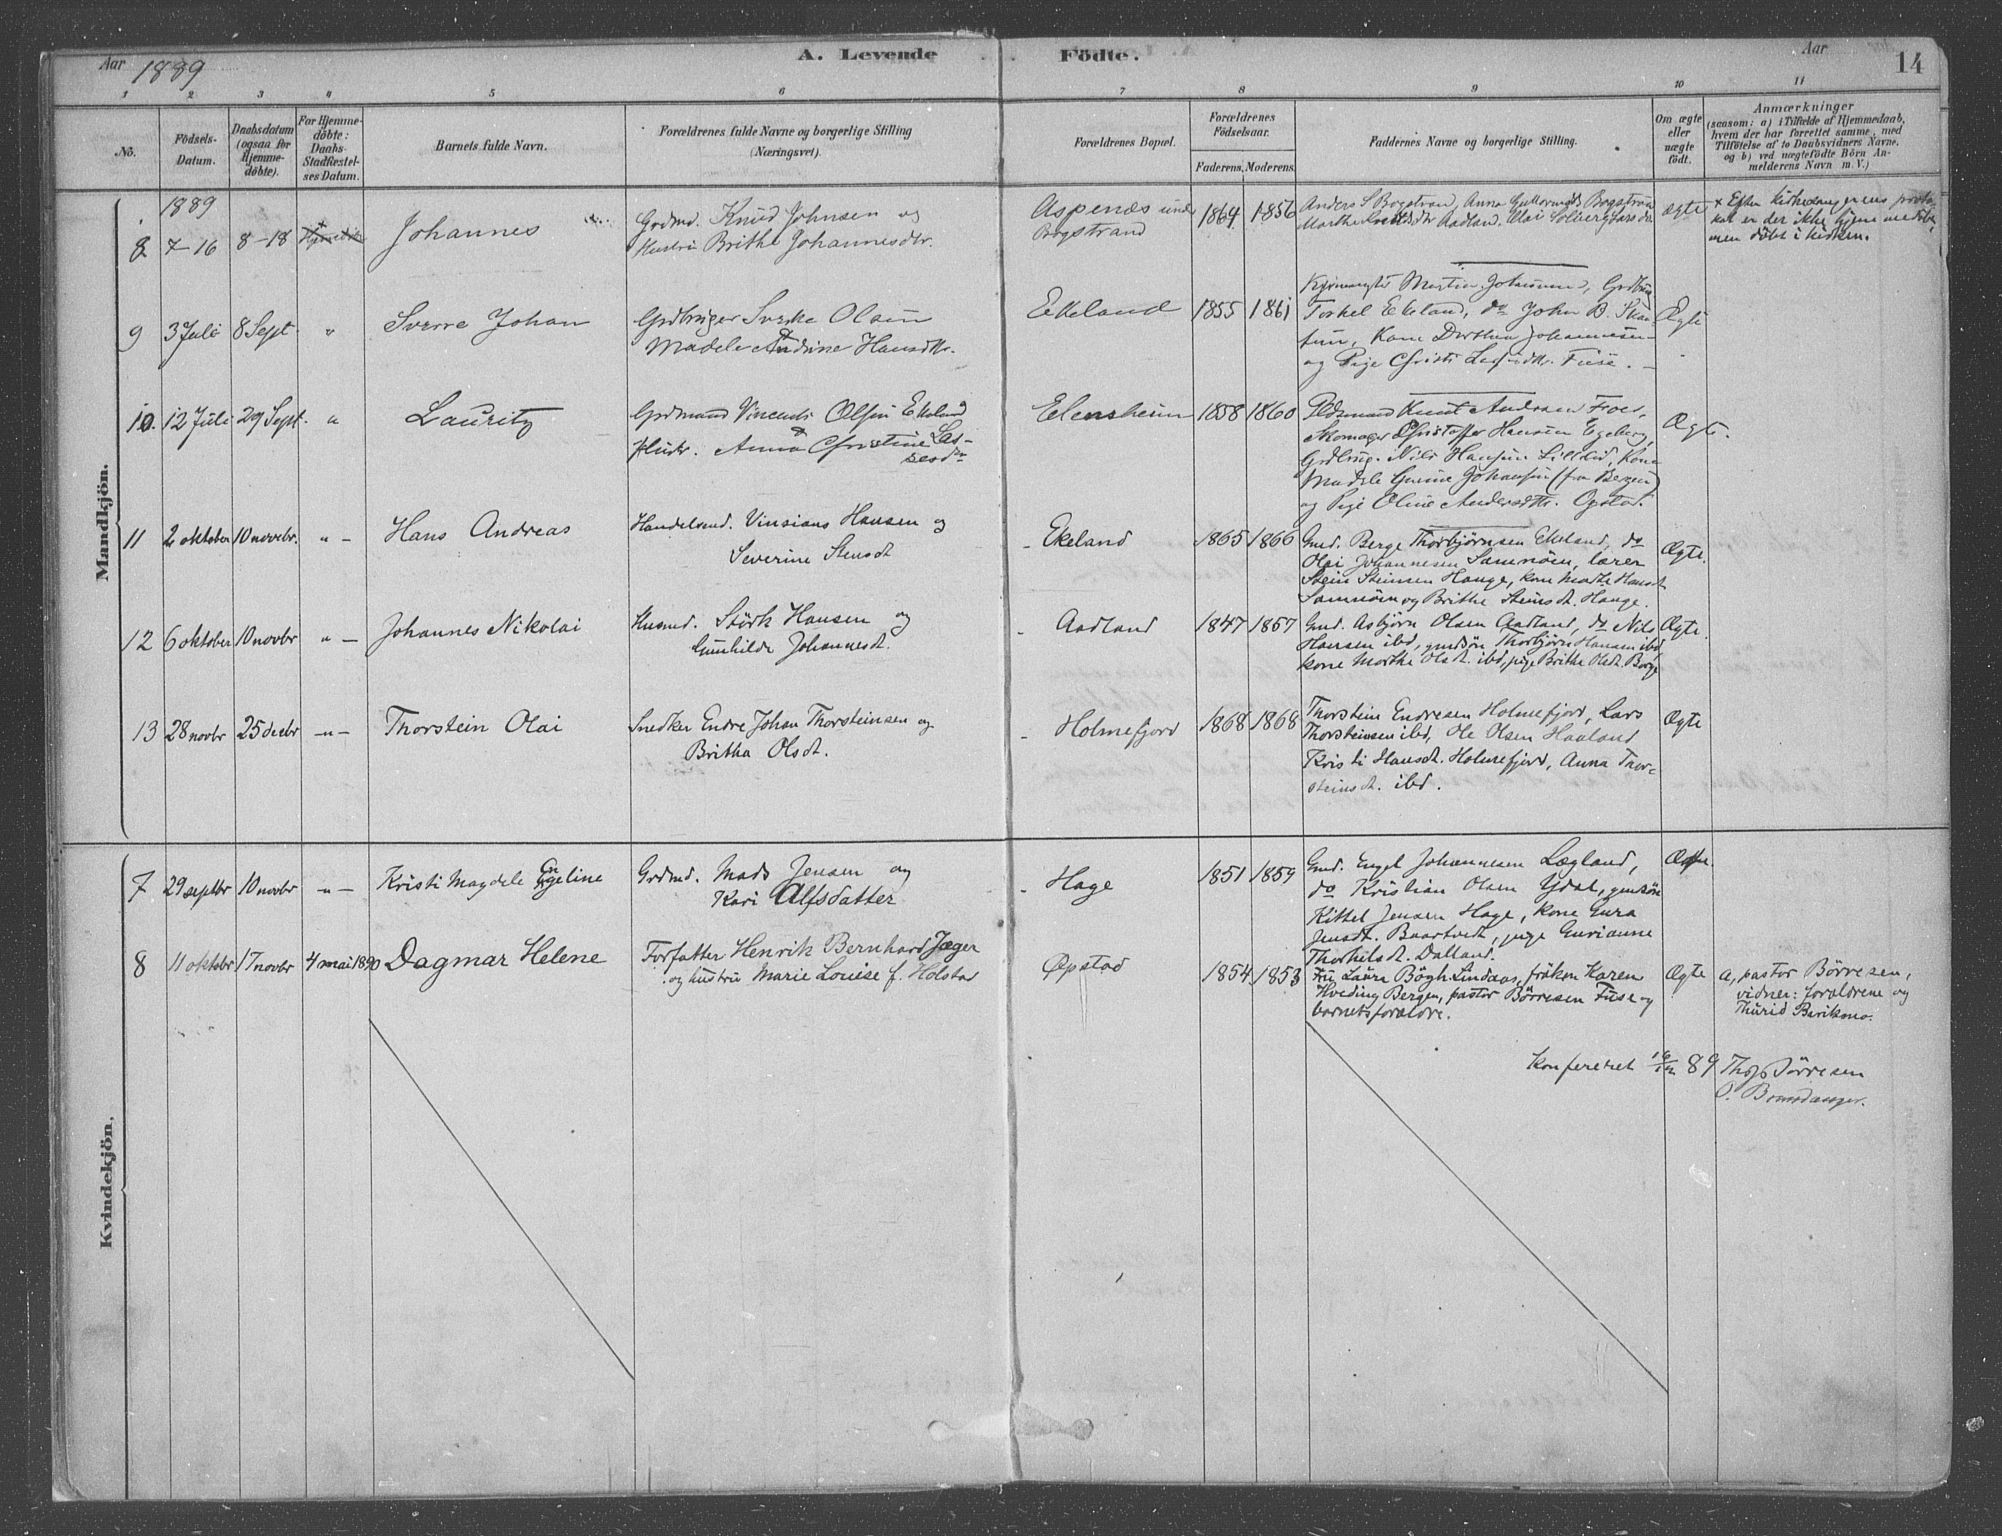 Aar 1889 A. Levende Födte. Aar 14
1 2 3 4 5 6 7 8 9 10 11
No.
Födsels-
Datum.
Daabsdatum
(ogsaa for
Hjemme-
döbte).
For Hjemme-
döbte:
Daabs-
Stadfæstel-
ses Datum.
Barnets fulde Navn.
Forældrenes fulde Navne og borgerlige Stilling
(Næringsvei).
Forældrenes Bopæl.
Forældrenes
Födselsaar.
Faderens. Moderens.
Faddernes Navne og borgerlige Stilling.
Om ægte
eller
uægte
födt.
Anmærkninger
(saasom: a) i Tilfælde af Hjemmedaab,
hvem der har forrettet samme, med
Tilföielse af to Daabsvidners Navne,
og b) ved uægtefödte Börn An-
melderens Navn m. V.)
Mandkjön.
1889
8 7-16 8-18 Johannes
Grdmd. Knud Johnsen og
Hustru Brithe Johannesdtr.
Aspenæs under
Bogstrand
1864 1856
Anders S Bogstrand, Anna Guttormsd Bogstrand
Aadland,
ægte
x Efter kirkesangerens proto-
kol er der ikke hjemmedöbt,
men döbt i kirken.
9 3 Juli 8 Sept " Sverre Johan
Grdbruger Sverke Olsen
Madele Andrine Hansdtr.
Ekeland
1855 1861
Martin Johannesen, Grdbrug
Torkel Ekeland, do John B. Skaa-
tun, Kone Dorthea Johannesen
og Pige Christi Fuse.
Ægte
10. 12 Juli 29 Sept. " Lauritz
Grdmand Vincents Olsen Ekeland
Hustr. Anna Christine Las-
sesdtr
1858 1860
Knut Andersen
Skomager Christoffer Hansen Egeberg,
Grdbrug. Nils Hansen Kone
Madele Johansen (fra Bergen)
og Pige Oline Andersdtr. Opstad.
Ægte.
11 2 oktober 10 novbr. " - Hans Andreas
Handelsmd. Vinsians Hansen og
Severine Stensdt
- Ekeland
1865 1866
Gmd. Berge Thorbjørnsen Ekeland, do
Olai Johannesen Samnöen, lærer
Stein Steinsen Hauge, kone Marthe Hansdt
Samnöen og Brithe Steinsdt. Hauge.
Ægte.
12 6 oktober 10 novbr " - Johannes Nikolai
Husmd. Størk Hansen og
Gunhilde Johannesdt.
- Aadland
1847 1857
Gmd. Asbjörn Olsen Aadland, do Nils
Hansen ibd, gmdsön Thorbjörn Hansen ibd,
kone Marthe Olsdt. ibd, pige Brithe Olsdt. Borge
Ægte.
13 28 novbr 25 decbr - " - Thorstein Olai
Snedker Endre Johan Thorsteinsen og
Britha Olsdt.
- Holmefjord
1868 1868
Thorstein Endresen Holmefjord, Lars
Thorsteinsen ibd, Ole Olsen Haaland
Kristi Hansdt. Holmefjord, Anna Thor-
steinsdt. ibd.
Ægte
Kvindekjön.
7 29 septbr 10 novbr - " - Kristi Magdele Engeline
Grdmd. Mads Jensen og
Kari Alfsdatter
- Hage
1851 1859
Gmd. Engel Johannesen Lægland,
do Kristian Olsen Ydal, gmdsön
Kittel Jensen Hage, kone Gura
Jensdt. Baartvedt, pige Gurianne
Thorkelsdt. Dalland.
Ægte.
8 11 oktobr 17 novbr 4 mai 1890 Dagmar Helene
Forfatter Henrik Bernhard Jæger
og hustru Marie Louise f. Holstad
Opstad
1854 1853
Fru Laura Bögh Lindaas, fröken Karen
Hveding Bergen, pastor Börresen Fuse og
barnets forældre.
Ægte
a, pastor Börresen,
vidner: forældrene og
Thurid
Konfereret 16/12 89 Börresen